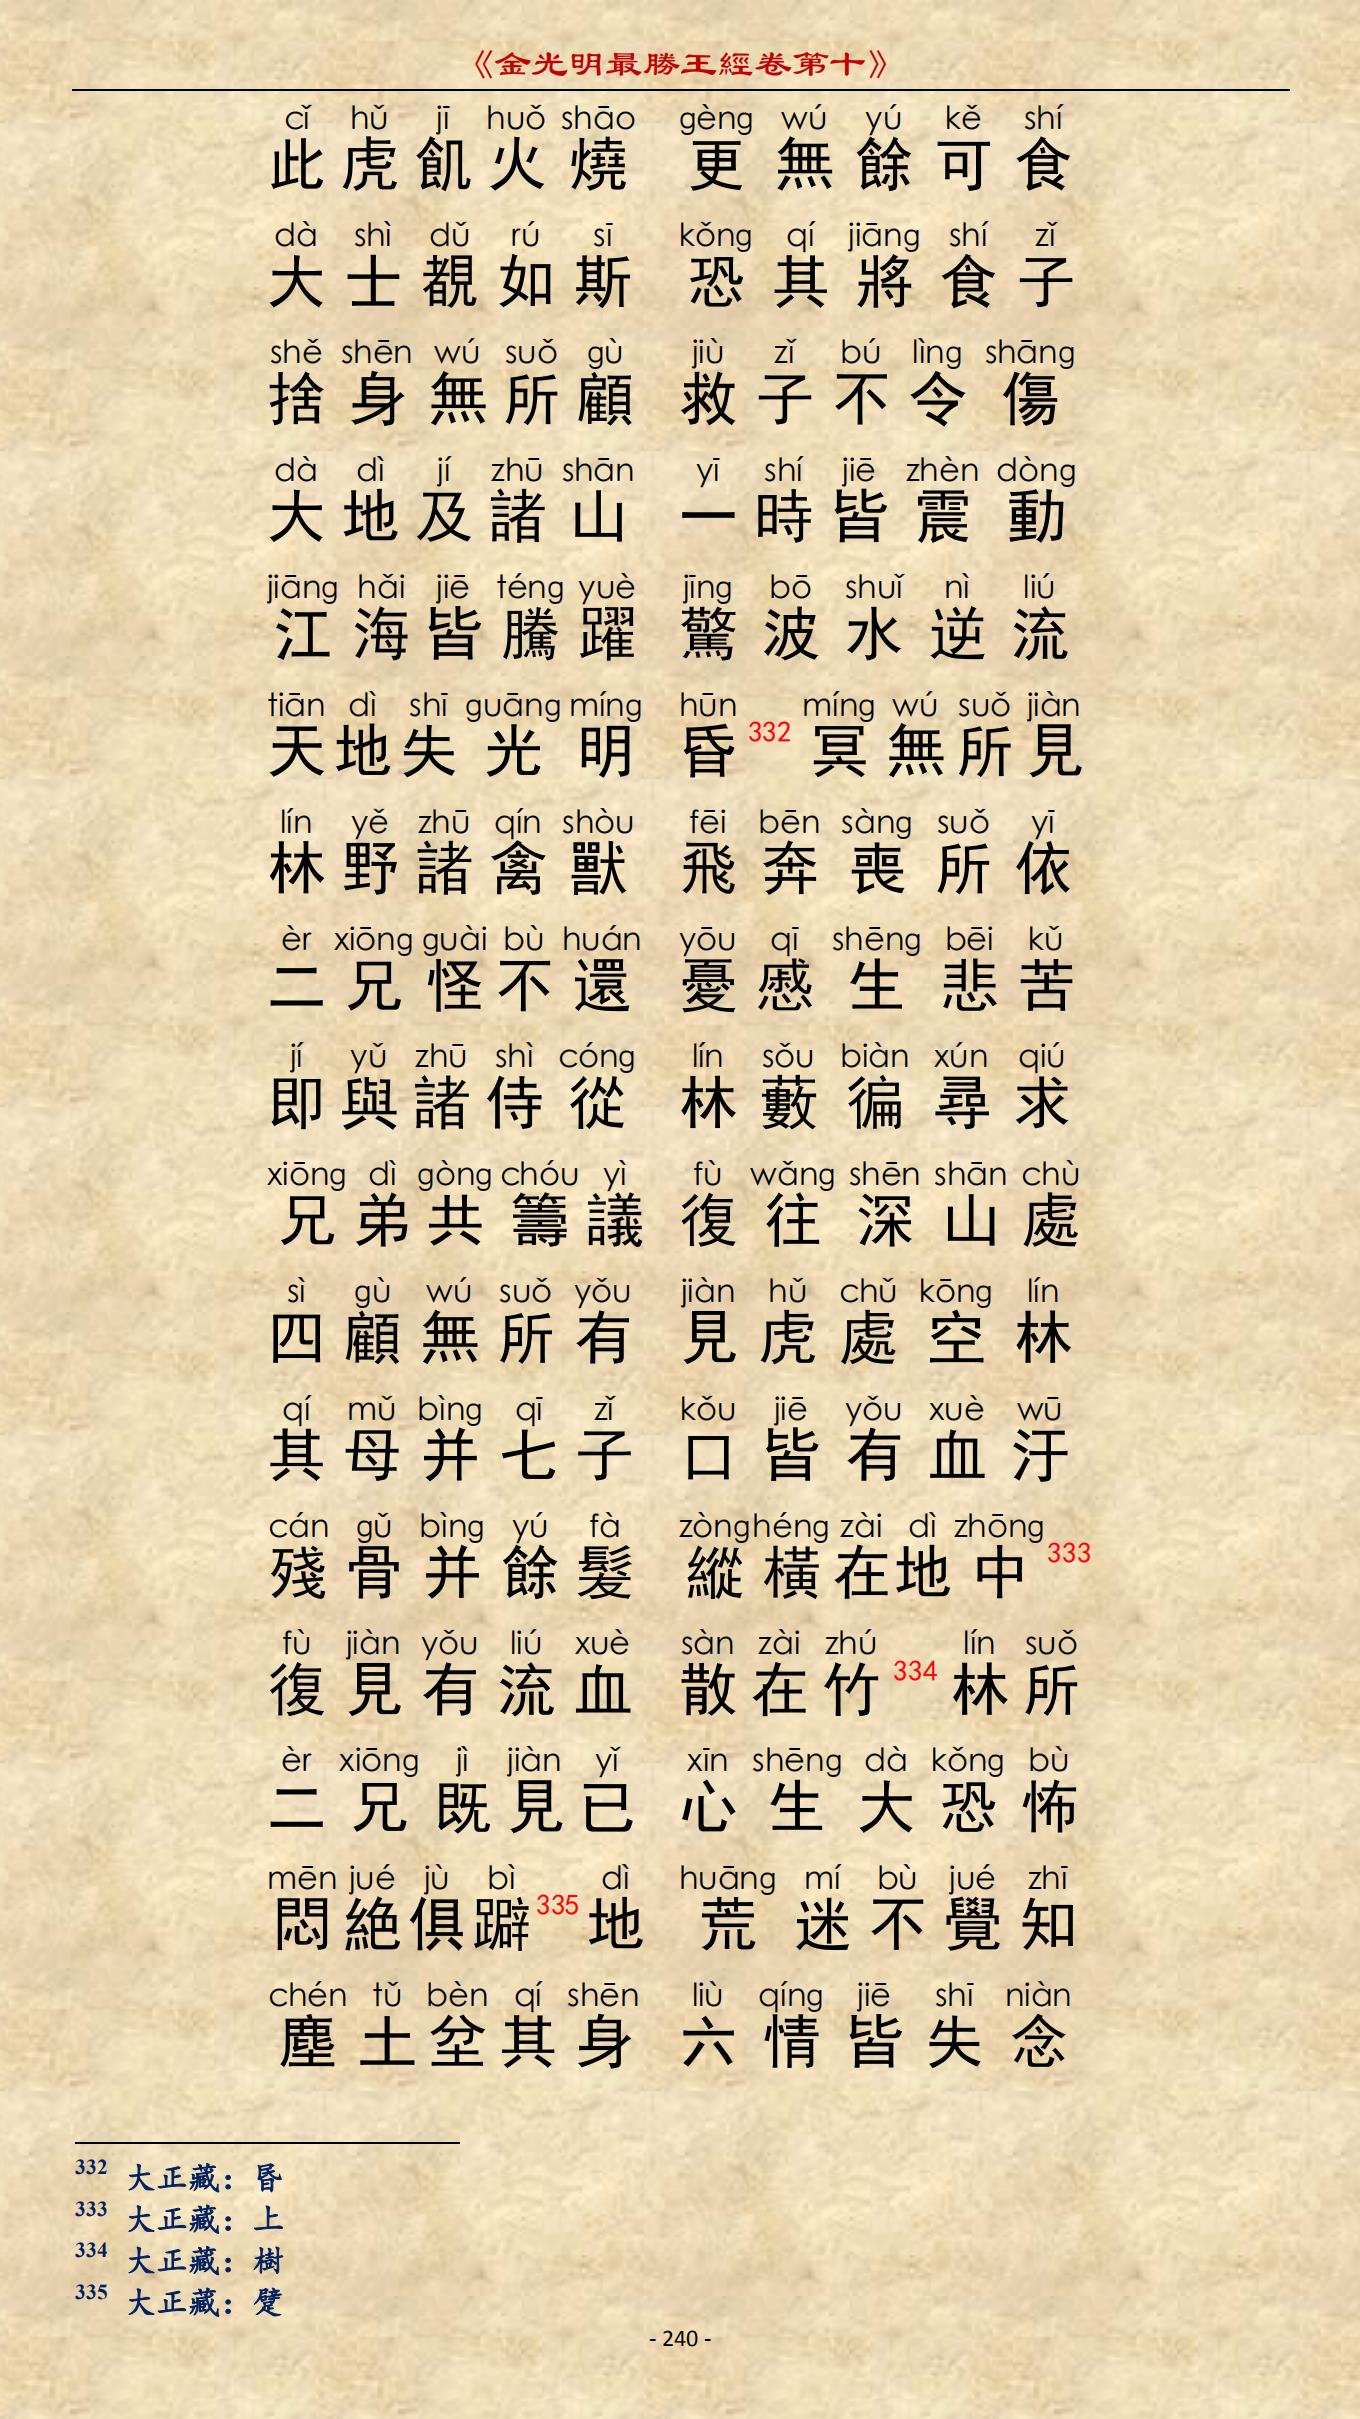 《金光明最勝王經卷第十》
cǐ hǔ jī huǒ shāo gèng wú yú kě shí
此虎飢火燒 更無餘可食
dà shì dǔ rú sī kǒng qí jiāng shí zǐ
大士覩如斯 恐其將食子
shě shēn wú suǒ gù jiù zǐ bú lìng shāng
捨身無所顧 救子不令傷
dà dì jí zhū shān yī shí jiē zhèn dòng
大地及諸山 一時皆震動
jiāng hǎi jiē téng yuè jīng bō shuǐ nì liú
江海皆騰躍 驚波水逆流
tiān dì shī guāng míng hūn míng wú suǒ jiàn
天地失光明 昏332冥無所見
lín yě zhū qín shòu fēi bēn sàng suǒ yī
林野諸禽獸 飛奔喪所依
èr xiōng guài bù huán yōu qī shēng bēi kǔ
二兄怪不還 憂慼生悲苦
jí yǔ zhū shì cóng lín sǒu biàn xún qiú
即與諸侍從 林藪徧尋求
xiōng dì gòng chóu yì fù wǎng shēn shān chù
兄弟共籌議 復往深山處
sì gù wú suǒ yǒu jiàn hǔ chǔ kōng lín
四顧無所有 見虎處空林
qí mǔ bìng qī zǐ kǒu jiē yǒu xuè wū
其母并七子 口皆有血汙
cán gǔ bìng yú fà zòng héng zài dì zhōng
殘骨并餘髮 縱橫在地中333
fù jiàn yǒu liú xuè sàn zài zhú lín suǒ
復見有流血 散在竹334林所
èr xiōng jì jiàn yǐ xīn shēng dà kǒng bù
二兄既見已 心生大恐怖
mēn jué jù bì dì huāng mí bù jué zhī
悶絕俱躃335地 荒迷不覺知
chén tǔ bèn qí shēn liù qíng jiē shī niàn
塵土坌其身 六情皆失念
332 大正藏：昬
333 大正藏：上
334 大正藏：樹
335 大正藏：躄
- 240 -